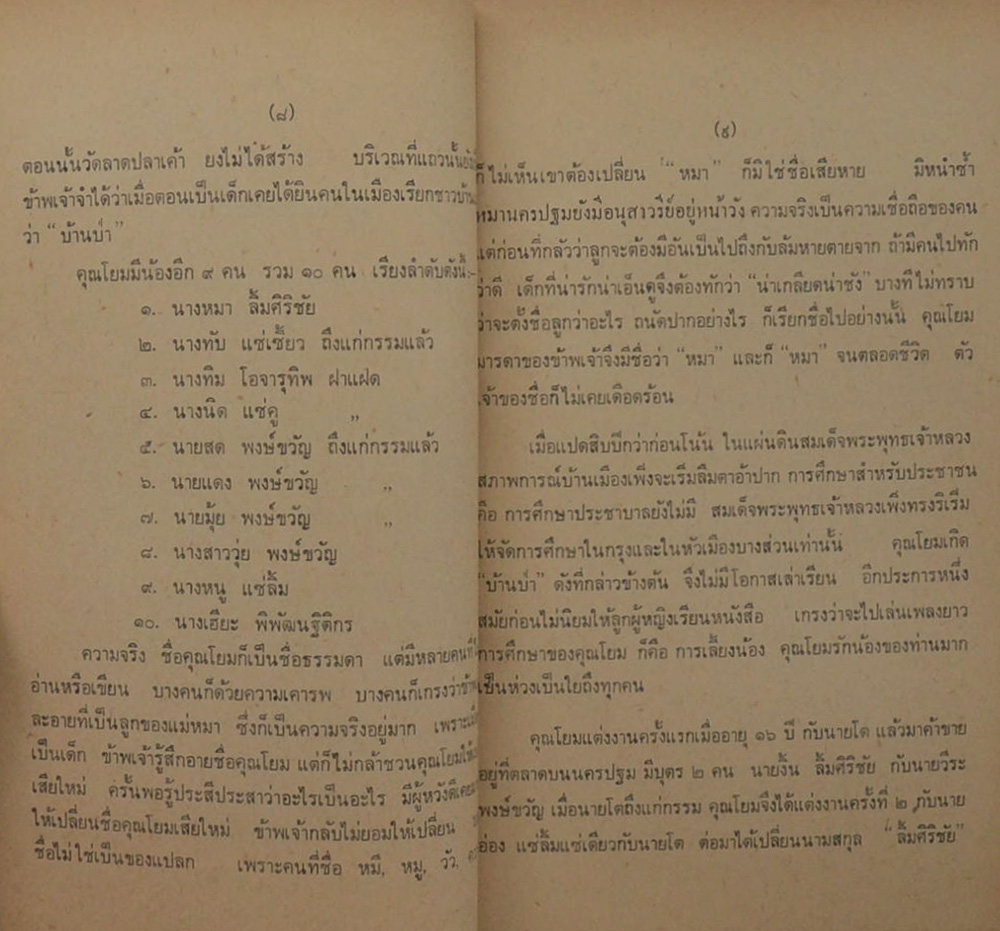 (๘)
ตอนนั้นวัดลาดปลาเค้า ยังไม่ได้สร้าง บริเวณที่แถวนั้น
ข้าพเจ้าจำได้ว่าเมื่อตอนเป็นเด็กเคยได้ยินคนในเมืองเรียกชาวบ้าน
ว่า “บ้านป่า”
คุณโยมมีน้องอีก ๙ คน รวม ๑๐ คน เรียงลำดับดังนี้:-
๑. นางหมา ลิ้มศิริชัย
๒. นางทับ แซ่เซี้ยว ถึงแก่กรรมแล้ว
๓. นางทิม โอจารุทิพ ฝาแฝด
๔. นางนิด แซ่คู ”
๕. นายสด พงษ์ขวัญ ถึงแก่กรรมแล้ว
๖. นายแดง พงษ์ขวัญ ”
๗. นายมุ้ย พงษ์ขวัญ ”
๘. นางสาววุ่ย พงษ์ขวัญ
๙. นางหนู แซ่ลิ้ม
๑๐. นางเฮียะ พิพัฒนฐิติกร
ความจริง ชื่อคุณโยมก็เป็นชื่อธรรมดา แต่มีหลายคนที่
อ่านหรือเขียน บางคนก็ด้วยความเคารพ บางคนก็เกรงว่าข้าพ
ละอายที่เป็นลูกของแม่หมา ซึ่งก็เป็นความจริงอยู่มาก เพราะเมื่อ
เป็นเด็ก ข้าพเจ้ารู้สึกอายชื่อคุณโยม แต่ก็ไม่กล้าชวนคุณโยมให้
เสียใหม่ ครั้นพอรู้ประสีประสาว่าอะไรเป็นอะไร มีผู้หวังดีเคย
ให้เปลี่ยนชื่อคุณโยมเสียใหม่ ข้าพเจ้ากลับไม่ยอมให้เปลี่ยน
ชื่อไม่ใช่เป็นของแปลก เพราะคนที่ชื่อ หมี, หมู, วัว,
(๙)
ก็ไม่เห็นเขาต้องเปลี่ยน “หมา” ก็มิใช่ชื่อเสียหาย มิหนำซ้ำ
หมานครปฐมยังมีอนุสาวรีย์อยู่หน้าวัง ความจริงเป็นความเชื่อถือของคน
แต่ก่อนที่กลัวว่าลูกจะต้องมีอันเป็นไปถึงกับล้มหายตายจาก ถ้ามีคนไปทัก
ว่าดี เด็กที่น่ารักน่าเอ็นดูจึงต้องทักว่า “น่าเกลียดน่าชัง” บางทีไม่ทราบ
ว่าจะตั้งชื่อลูกว่าอะไร ถนัดปากอย่างไร ก็เรียกชื่อไปอย่างนั้น คุณโยม
มารดาของข้าพเจ้าจึงมีชื่อว่า “หมา” และก็ “หมา” จนตลอดชีวิต ตัว
เจ้าของชื่อก็ไม่เคยเดือดร้อน
เมื่อแปดสิบปีกว่าก่อนโน้น ในแผ่นดินสมเด็จพระพุทธเจ้าหลวง
สภาพการณ์บ้านเมืองเพิ่งจะเริ่มลืมตาอ้าปาก การศึกษาสำหรับประชาชน
คือ การศึกษาประชาบาลยังไม่มี สมเด็จพระพุทธเจ้าหลวงเพิ่งทรงริเริ่ม
ให้จัดการศึกษาในกรุงและในหัวเมืองบางส่วนเท่านั้น คุณโยมเกิด
“บ้านป่า” ดังที่กล่าวข้างต้น จึงไม่มีโอกาสเล่าเรียน อีกประการหนึ่ง
สมัยก่อนไม่นิยมให้ลูกผู้หญิงเรียนหนังสือ เกรงว่าจะไปเล่นเพลงยาว
การศึกษาของคุณโยม ก็คือ การเลี้ยงน้อง คุณโยมรักน้องของท่านมาก
เป็นห่วงเป็นใยถึงทุกคน
คุณโยมแต่งงานครั้งแรกเมื่ออายุ ๑๖ ปี กับนายโต แล้วมาค้าขาย
อยู่ที่ตลาดบนนครปฐม มีบุตร ๒ คน นายงิ้น ลิ้มศิริชัย กับนายวีระ
พงษ์ขวัญ เมื่อนายโตถึงแก่กรรม คุณโยมจึงได้แต่งงานครั้งที่ ๒ กับนาย
ฮ่อง แซ่ลิ้มแซ่เดียวกับนายโต ต่อมาได้เปลี่ยนนามสกุล “ลิ้มศิริชัย”